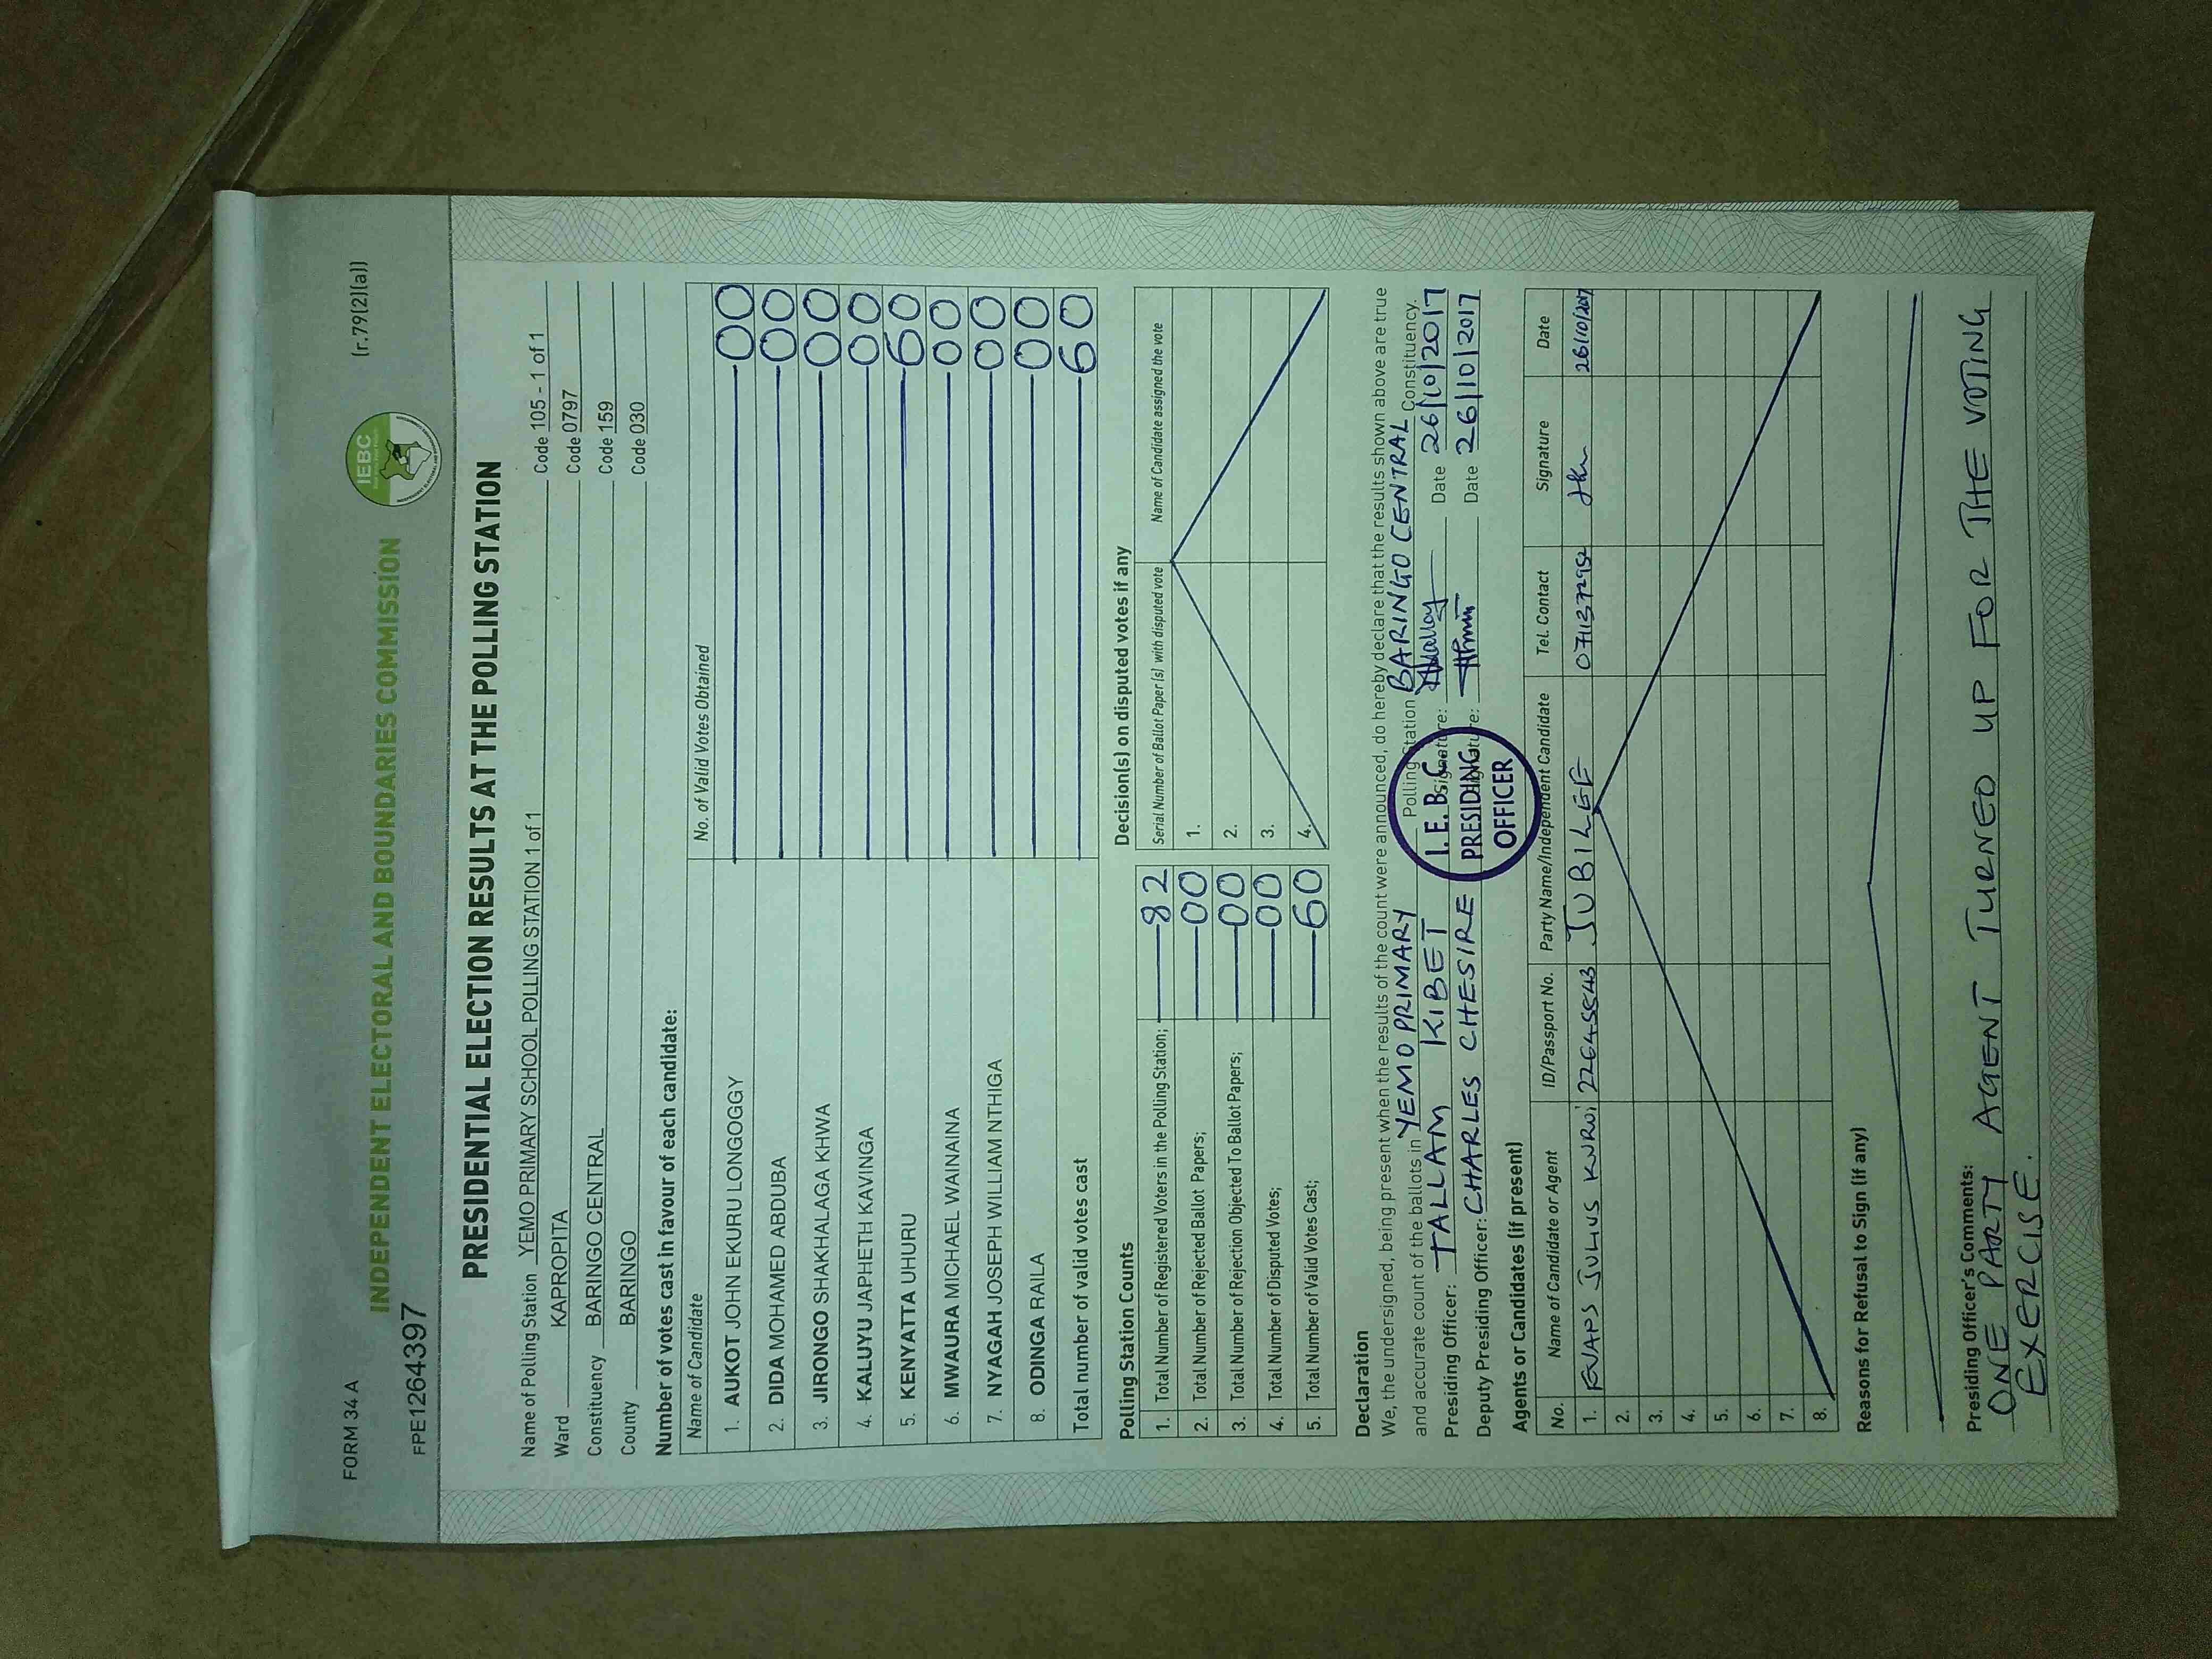 FORM 34 A
(r.79(2)(a))
IEBC
INDEPENDENT ELECTORAL AND BOUNDARIES COMMISSION
FPE1264397
PRESIDENTIAL ELECTION RESULTS AT THE POLLING STATION
Name of Polling Station YEMO PRIMARY SCHOOL POLLING STATION 1 of 1 Code 105 - 1 of 1
Ward KAPROPITA Code 0797
Constituency BARINGO CENTRAL Code 159
County BARINGO Code 030
Number of votes cast in favour of each candidate:
Name of Candidate No. of Valid Votes Obtained
1. AUKOT JOHN EKURU LONGOGGY 00
2. DIDA MOHAMED ABDUBA 00
3. JIRONGO SHAKHALAGA KHWA 00
4. KALUYU JAPHETH KAVINGA 00
5. KENYATTA UHURU 60
6. MWAURA MICHAEL WAINAINA 00
7. NYAGAH JOSEPH WILLIAM NTHIGA 00
8. ODINGA RAILA 00
Total number of valid votes cast 60
Polling Station Counts
1. Total Number of Registered Voters in the Polling Station; 82
2. Total Number of Rejected Ballot Papers; 00
3. Total Number of Rejection Objected To Ballot Papers; 00
4. Total Number of Disputed Votes; 00
5. Total Number of Valid Votes Cast; 60
Decision(s) on disputed votes if any
Serial Number of Ballot Paper (s) with disputed vote Name of Candidate assigned the vote
1.
2.
3.
4.
Declaration
We, the undersigned, being present when the results of the count were announced, do hereby declare that the results shown above are true
and accurate count of the ballots in YEMO PRIMARY Polling Station BARINGO CENTRAL Constituency.
Presiding Officer: TALLAM KIBET Signature: Date 26/10/2017
Deputy Presiding Officer: CHARLES CHESIRE Signature: Date 26/10/2017
I.E.B.C
PRESIDING
OFFICER
Agents or Candidates (if present)
No. Name of Candidate or Agent ID/Passport No. Party Name/Independent Candidate Tel. Contact Signature Date
1. JULIUS JUBILEE 26/10/2017
2.
3.
4.
5.
6.
7.
8.
Reasons for Refusal to Sign (if any)
Presiding Officer's Comments:
ONE PARTY AGENT TURNED UP FOR THE VOTING
EXERCISE.